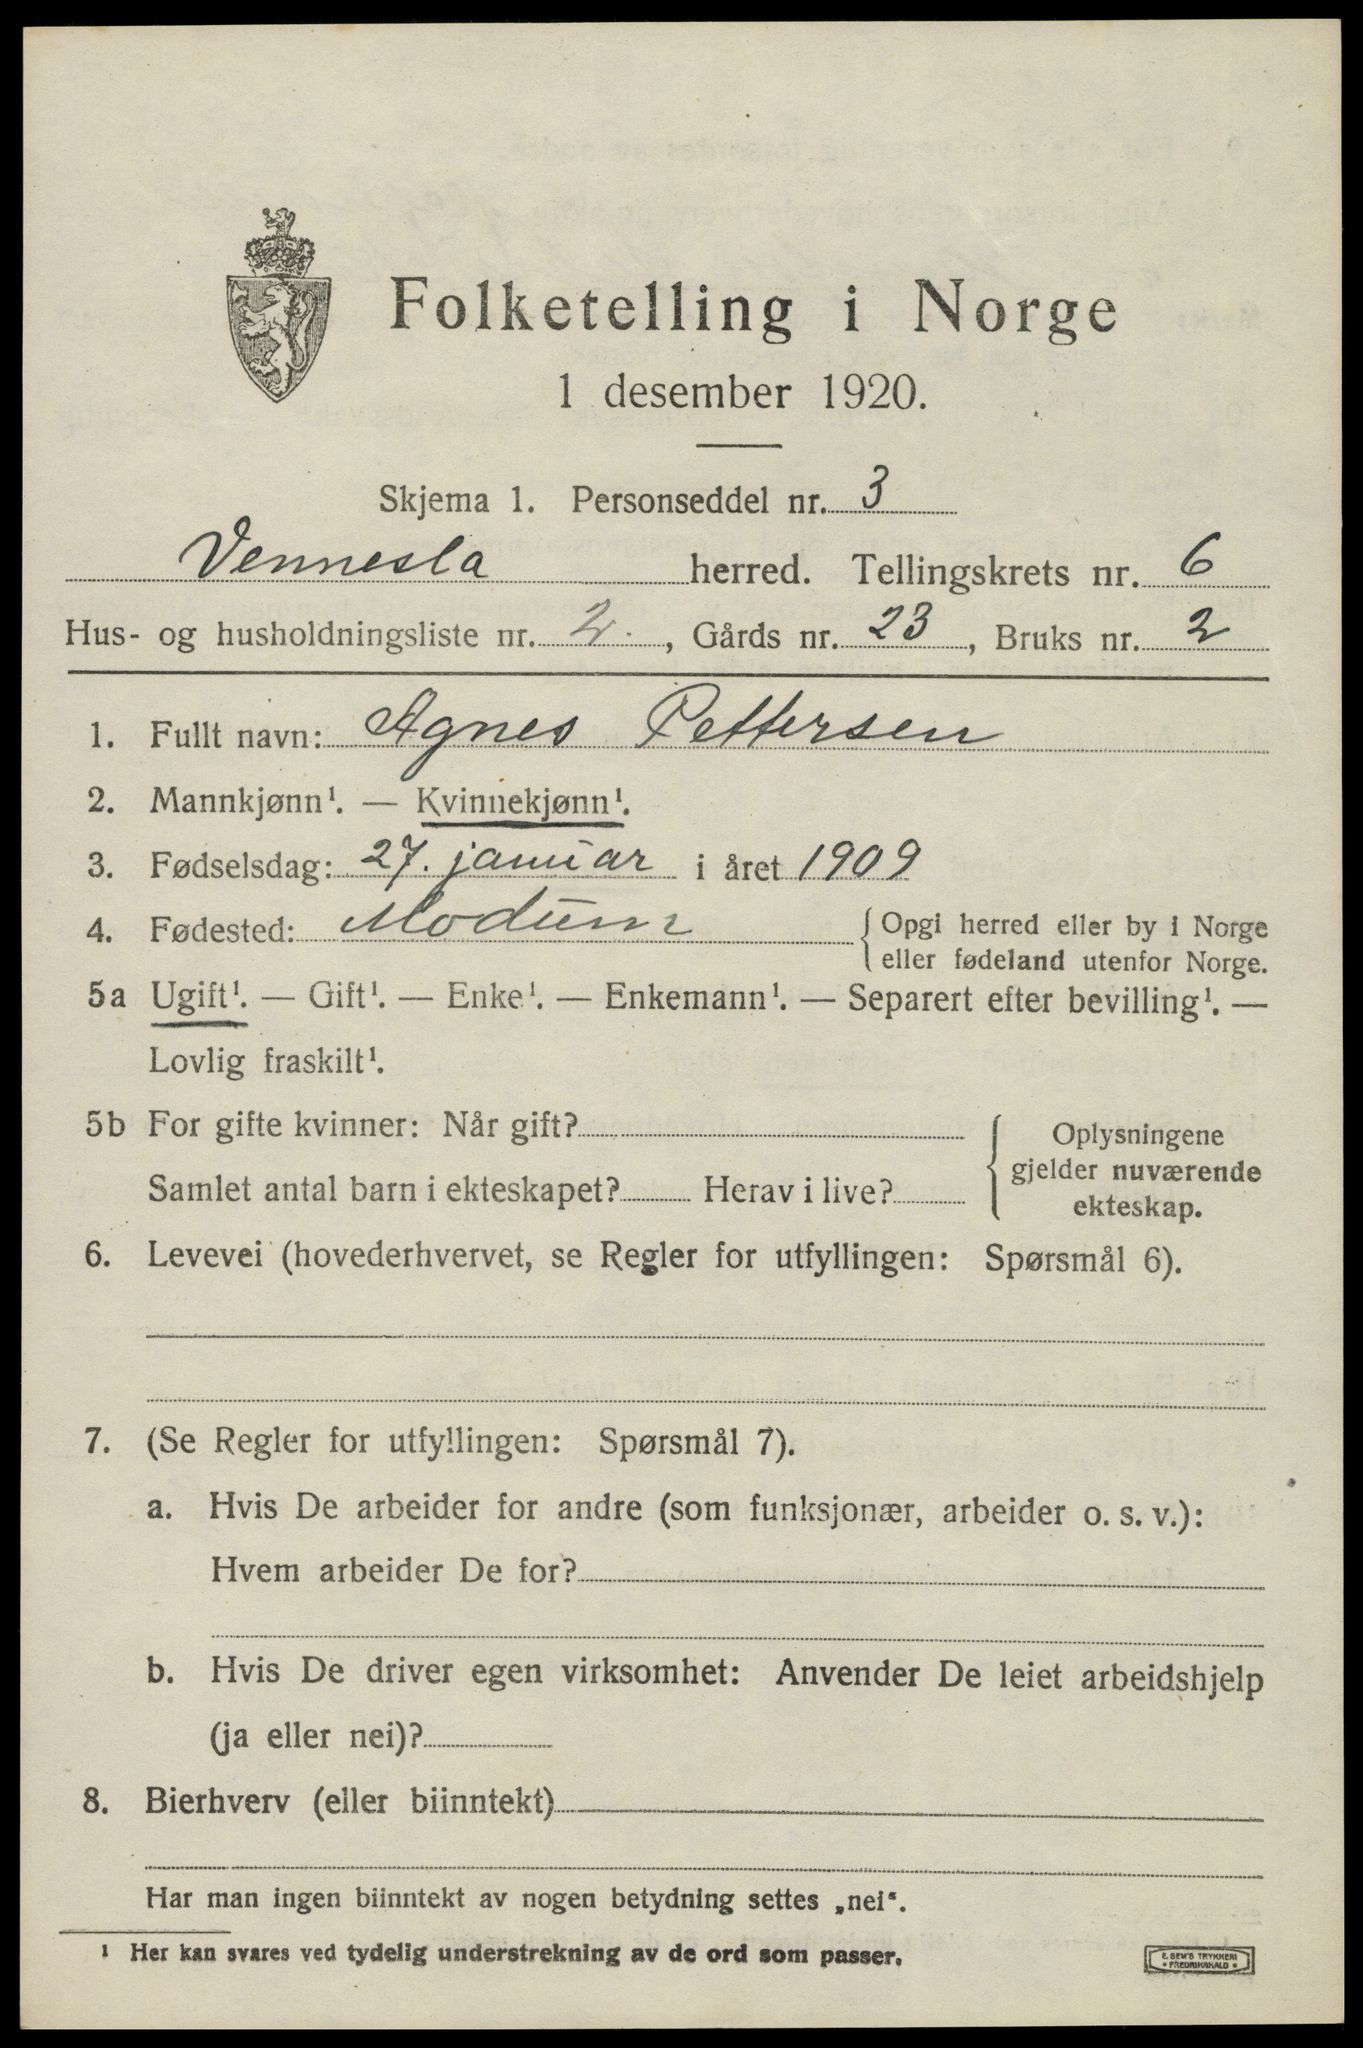 Folketelling i Norge
1 desember 1920.
Skjema 1. Personseddel nr. 3
Vennesla herred. Tellingskrets nr. 6
Hus- og husholdningsliste nr. 2. , Gårds nr. 23 , Bruks nr. 2
1. Fullt navn: Agnes Pettersen
2. Mannkjønn¹. — Kvinnekjønn¹.
3. Fødselsdag: 27. januar i året 1909
4. Fødested: Modum { Opgi herred eller by i Norge
eller fødeland utenfor Norge.
5a Ugift¹. — Gift¹. — Enke¹. — Enkemann¹. — Separert efter bevilling¹. —
Lovlig fraskilt¹.
5b For gifte kvinner: Når gift?
Samlet antal barn i ekteskapet? Herav i live?
{ Oplysningene
gjelder nuværende
ekteskap.
6. Levevei (hovederhvervet, se Regler for utfyllingen: Spørsmål 6).
7. (Se Regler for utfyllingen: Spørsmål 7).
a. Hvis De arbeider for andre (som funksjonær, arbeider o. s. v.):
Hvem arbeider De for?
b. Hvis De driver egen virksomhet: Anvender De leiet arbeidshjelp
(ja eller nei)?
8. Bierhverv (eller biinntekt)
Har man ingen biinntekt av nogen betydning settes „nei“.
¹ Her kan svares ved tydelig understrekning av de ord som passer.
E. SEM'S TRYKKERI
• FREDRIKSHALD •